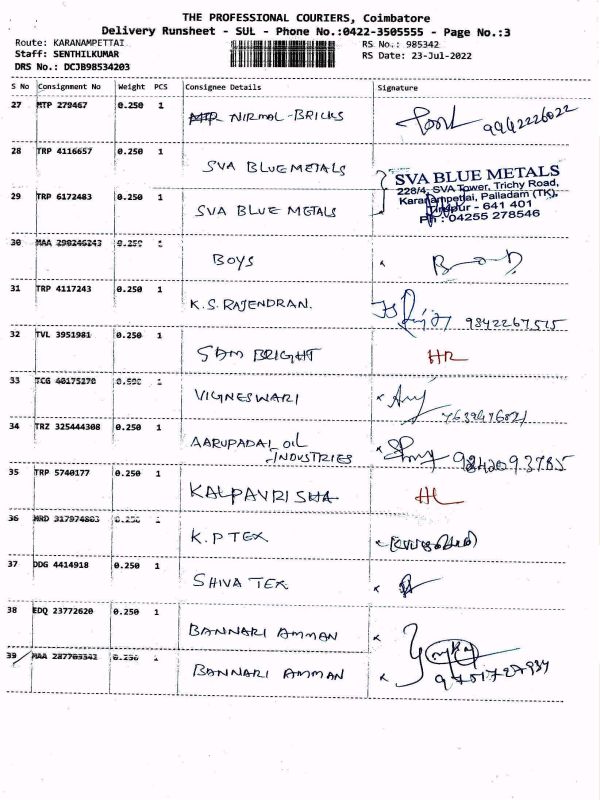 THE PROFESSIONAL COURIERS, Coimbatore
Delivery Runsheet - SUL - Phone No.:0422-3505555 - Page No.:3
Route: KARANAMPETTAI
RS No.: 985342
Staff: SENTHILKUMAR
RS Date: 23-Jul-2022
DRS No.: DCJB98534203
S No Consignment No Weight PCS Consignee Details Signature
27 MTP 279467 0.250 1 NIRMAL-BRICKS 9942226022
28 TRP 4116657 0.250 1 SVA BLUE METALS
SVA BLUE METALS
228/4, SVA Tower, Trichy Road,
Karanampettai, Palladam (TK),
Tirupur - 641 401
Ph : 04255 278546
29 TRP 6172483 0.250 1 SVA BLUE METALS
30 MAA 290246243 0.250 1 BOYS
31 TRP 4117243 0.250 1 K.S. RAJENDRAN. 9842267515
32 TVL 3951981 0.250 1 SAM BRIGHT HR
33 TCG 40175270 0.500 1 VIGNESWARI
34 TRZ 325444308 0.250 1 AARUPADAI OIL
INDUSTRIES 9842093785
35 TRP 5740177 0.250 1 KALPAVRISHA HL
36 MRD 317974803 0.250 1 K.P TEX
37 DDG 4414918 0.250 1 SHIVA TEX
38 EDQ 23772620 0.250 1 BANNARI AMMAN
39 MAA 287703342 0.250 1 BANNARI AMMAN